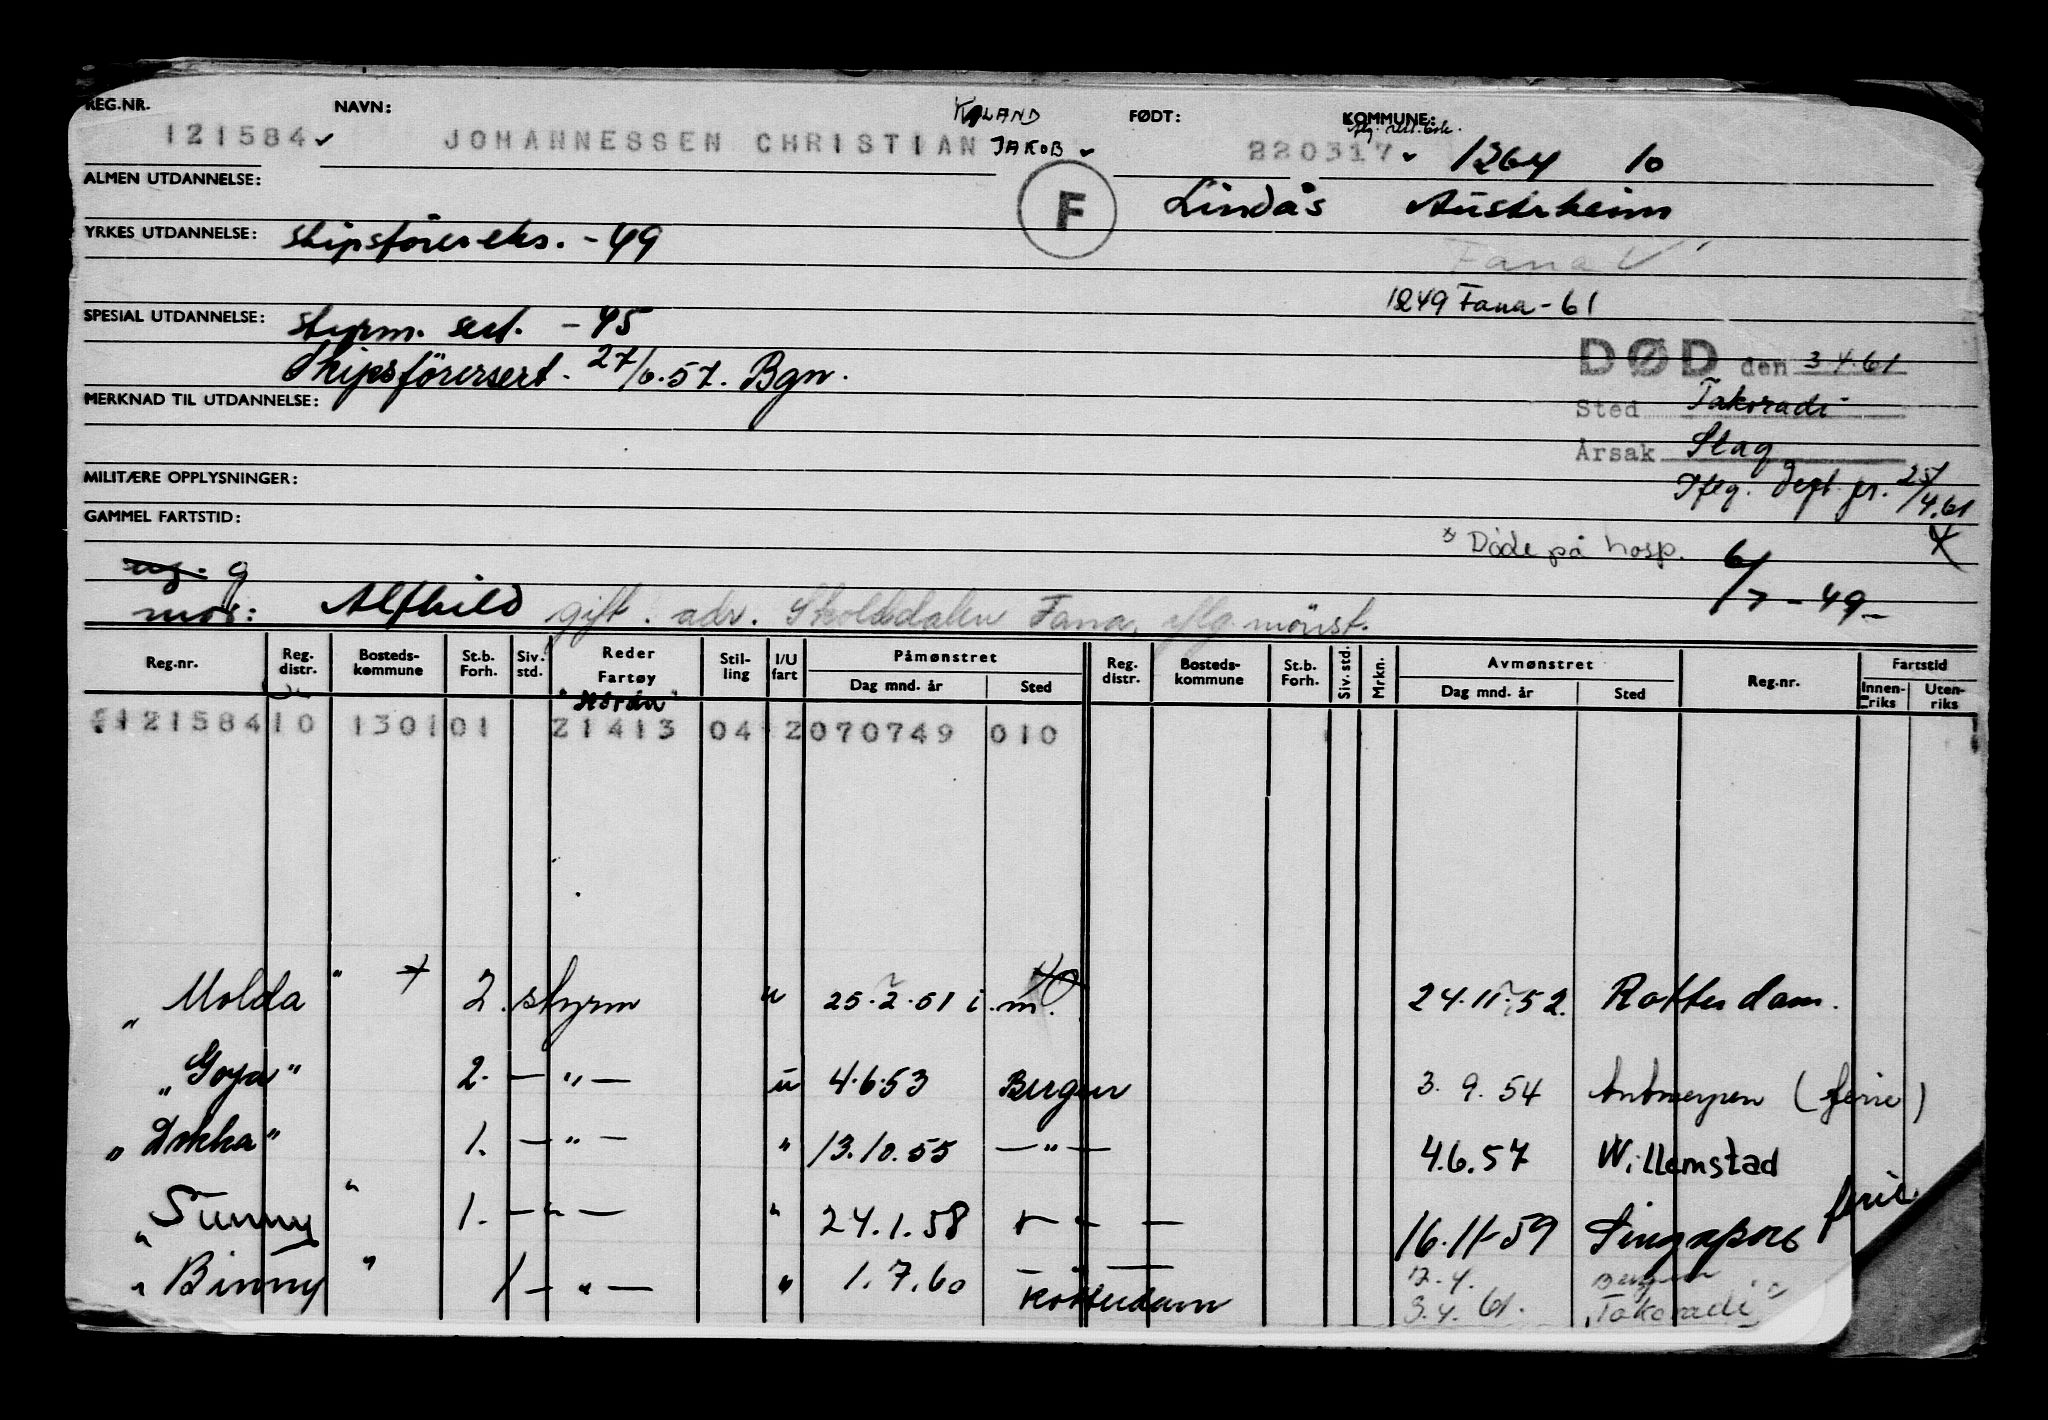 REG.NR. NAVN: KALAND FØDT: KOMMUNE:
121584 JOHANNESSEN CHRISTIAN JAKOB 220317 1264 10
ALMEN UTDANNELSE: F Lindås Austrheim
YRKES UTDANNELSE: skipsförereks. - 49
Fana
1249 Fana - 61
SPESIAL UTDANNELSE: styrm. sert. - 45
DØD den 3 4.61
Skipsförersert. 27/6.57. Bgn.
MERKNAD TIL UTDANNELSE:
Sted Takoradi
Årsak Slag
MILITÆRE OPPLYSNINGER:
Iflg. Dept. jr. 25/4.61
GAMMEL FARTSTID:
x Døde på hosp.
ug. g 6/7 - 49 -
mor: Alfhild gift. adr. Skoltedalen Fana, iflg. mönst.
Reg.nr. Reg. distr. Bosteds- kommune St.b. Forh. Siv. std. Reder Fartøy Stil- ling I/U fart Påmønstret Dag mnd. år Sted Reg. distr. Bosteds- kommune St.b. Forh. Siv. std. Mrkn. Avmønstret Dag mnd. år Sted Reg.nr. Fartstid Innen- riks Uten- riks
"Horda"
121584 10 1301 01 21413 04 2 070749 010
" Molda " 2. styrm u 25.2.51 i.m. 24.11.52. Rotterdam.
"Goya" 2. — " — u 4.6.53 Bergen 3.9.54 Antwerpen (ferie)
"Dokka" 1. — " — " 13.10.55 — " — 4.6.57 Willemstad
" Sunny " 1. — " — " 24.1.58 — " — 16.11-59 Singapore ferie
" Binny " 1 — " — " 1.7.60 — " — 12.4. Bergen
Rotterdam 3.4.61. "Takoradi"